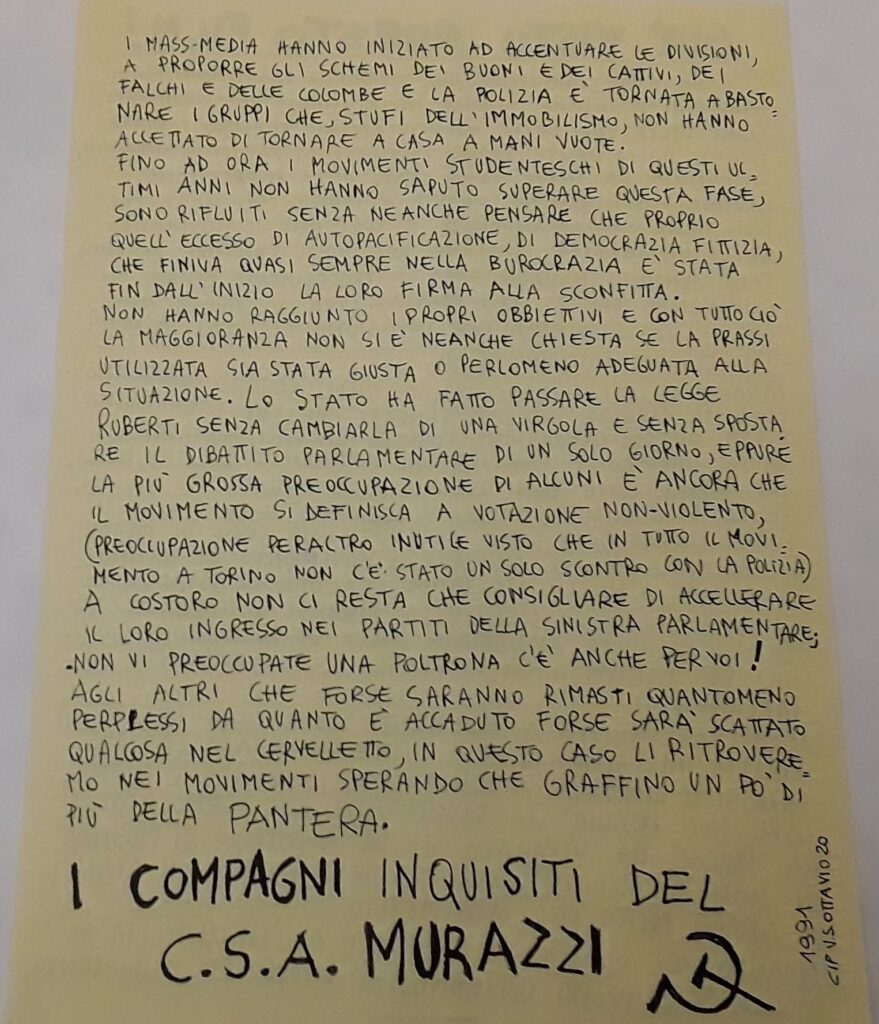 I MASS-MEDIA HANNO INIZIATO AD ACCENTUARE LE DIVISIONI,
A PROPORRE GLI SCHEMI DEI BUONI E DEI CATTIVI, DEI
FALCHI E DELLE COLOMBE E LA POLIZIA E' TORNATA A BASTO=
NARE I GRUPPI CHE, STUFI DELL'IMMOBILISMO, NON HANNO
ACCETTATO DI TORNARE A CASA A MANI VUOTE.
FINO AD ORA I MOVIMENTI STUDENTESCHI DI QUESTI UL=
TIMI ANNI NON HANNO SAPUTO SUPERARE QUESTA FASE,
SONO RIFLUITI SENZA NEANCHE PENSARE CHE PROPRIO
QUELL'ECCESSO DI AUTOPACIFICAZIONE, DI DEMOCRAZIA FITTIZIA,
CHE FINIVA QUASI SEMPRE NELLA BUROCRAZIA E' STATA
FIN DALL'INIZIO LA LORO FIRMA ALLA SCONFITTA.
NON HANNO RAGGIUNTO I PROPRI OBBIETTIVI E CON TUTTO CIO'
LA MAGGIORANZA NON SI E' NEANCHE CHIESTA SE LA PRASSI
UTILIZZATA SIA STATA GIUSTA O PERLOMENO ADEGUATA ALLA
SITUAZIONE. LO STATO HA FATTO PASSARE LA LEGGE
RUBERTI SENZA CAMBIARLA DI UNA VIRGOLA E SENZA SPOSTA
RE IL DIBATTITO PARLAMENTARE DI UN SOLO GIORNO, EPPURE
LA PIÙ GROSSA PREOCCUPAZIONE DI ALCUNI E' ANCORA CHE
IL MOVIMENTO SI DEFINISCA A VOTAZIONE NON-VIOLENTO,
(PREOCCUPAZIONE PERALTRO INUTILE VISTO CHE IN TUTTO IL MOVI=
MENTO A TORINO NON C'E' STATO UN SOLO SCONTRO CON LA POLIZIA)
A COSTORO NON CI RESTA CHE CONSIGLIARE DI ACCELLERARE
IL LORO INGRESSO NEI PARTITI DELLA SINISTRA PARLAMENTARE;
.NON VI PREOCCUPATE UNA POLTRONA C'E' ANCHE PER VOI!
AGLI ALTRI CHE FORSE SARANNO RIMASTI QUANTOMENO
PERPLESSI DA QUANTO E' ACCADUTO FORSE SARA' SCATTATO
QUALCOSA NEL CERVELLETTO, IN QUESTO CASO LI RITROVERE=
MO NEI MOVIMENTI SPERANDO CHE GRAFFINO UN PO' DI
PIÙ DELLA PANTERA.
I COMPAGNI INQUISITI DEL
C.S.A. MURAZZI
1991
CIP V.S.OTTAVIO 20